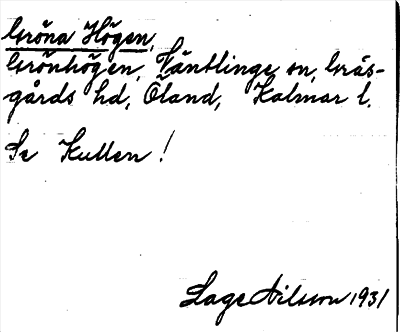 Gröna Högen,
Grönhögen, Ventlinge sn, Grås-
gårds hd, Öland, Kalmar l.
Se Kullen!
Lage Nilsson 1931